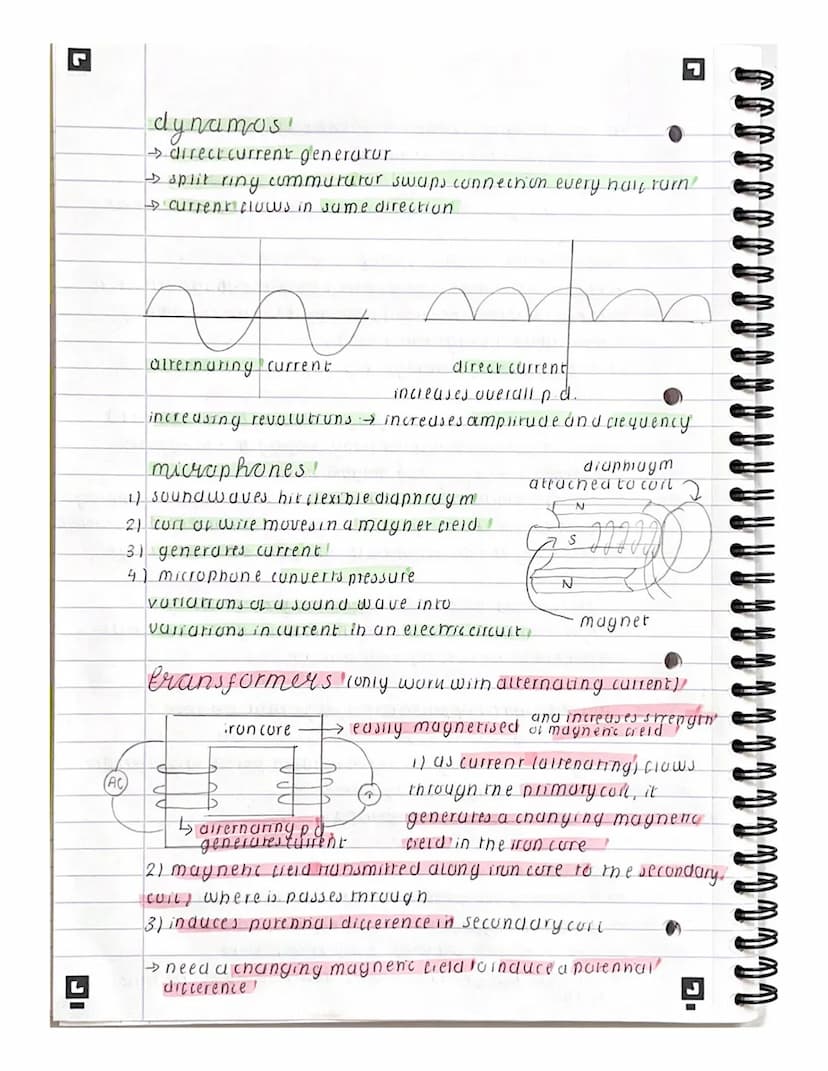 dynamos
→ direct current generator
→ split ring commutator swaps connection every half turn
→ current flows in same direction
alternating current
direct current
increases overall p.d.
increasing revolutions → increases amplitude and frequency
microphones
diaphragm
attached to coil
1) soundwaves hit flexible diaphragm
2) coil of wire moves in a magnet field
3) generates current
4) microphone converts pressure
variations of a sound wave into
variations in current in an electric circuit
N
S
N
magnet
transformers (only work with alternating current)
iron core → easily magnetised and increases strength
of magnetic field
AC
1) as current (alternating) flows
through the primary coil, it
generates a changing magnetic
field in the iron core
↳ alternating p.d.
generates current
2) magnetic field transmitted along iron core to the secondary
coil, where is passes through
3) induces potential difference in secondary coil
→ need a changing magnetic field to induce a potential
difference